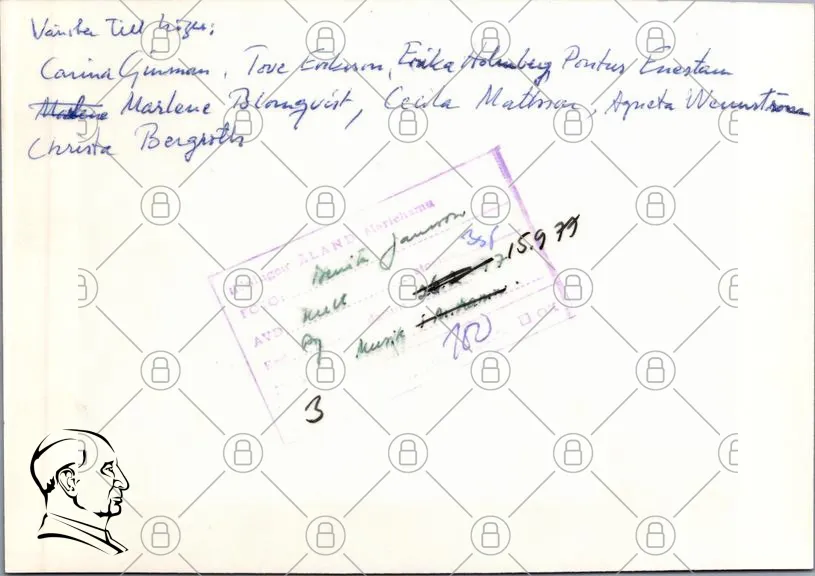 Vänster till höger:
Carina Gunman, Tove Erikson, Erika Holmberg Pontus Enestam
Marlene Blomqvist, Cecila Mattsson, Agneta Wennström
Christa Bergroth
ÅLAND Mariehamn
FOTO: Benita Jansson
15.9 79
AVD
Musik
100
3